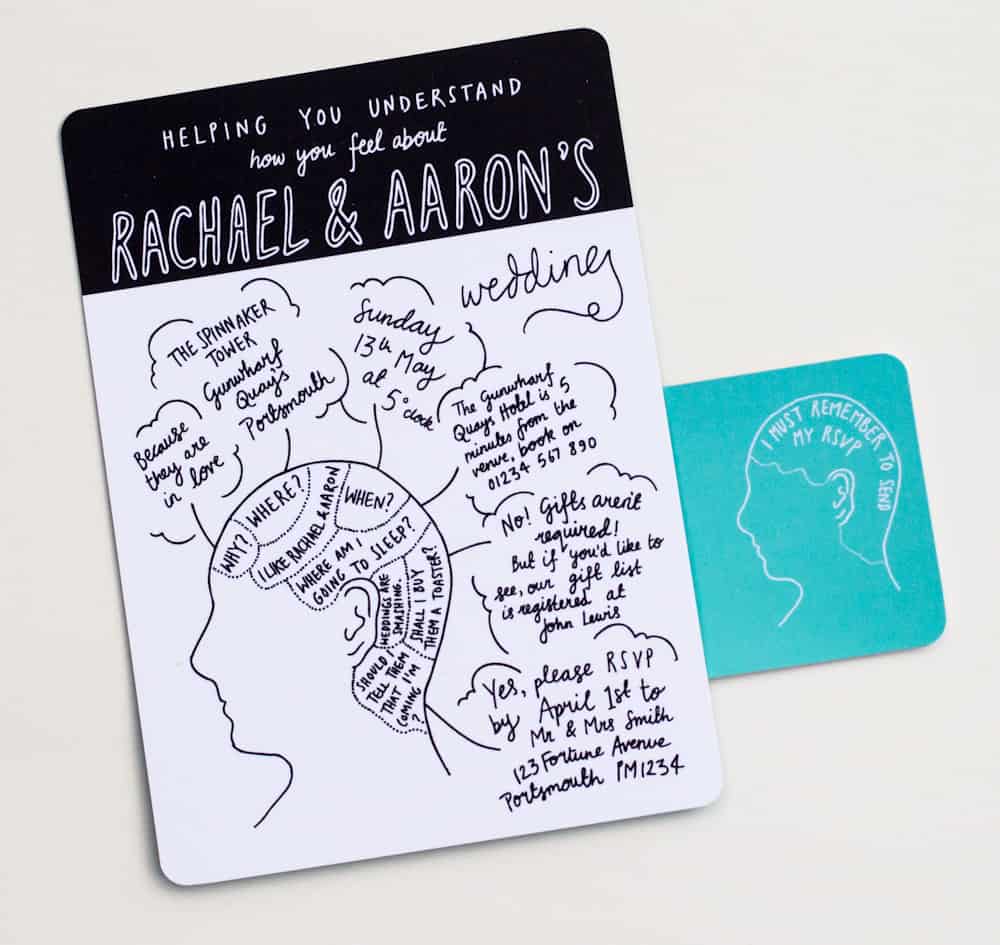 HELPING YOU UNDERSTAND
how you feel about
RACHAEL & AARON'S
wedding
THE SPINNAKER
TOWER
Gunwharf
Quay's
Portsmouth
Sunday
13th May
at 5 o'clock
Because
they are
in love
The Gunwharf
Quays Hotel is 5
minutes from the
venue, book on
01234 567 890
WHY?
WHERE?
I LIKE RACHAEL & AARON
WHEN?
WHERE AM I
GOING TO SLEEP?
WEDDINGS ARE
SMASHING.
SHALL I BUY
THEM A TOASTER?
SHOULD I
TELL THEM
THAT I'M
COMING
?
No! Gifts aren't
required!
But if you'd like to
see, our gift list
is registered at
John Lewis
Yes, please RSVP
by April 1st to
Mr & Mrs Smith
123 Fortune Avenue
Portsmouth PM1234
I MUST REMEMBER TO SEND
MY RSVP